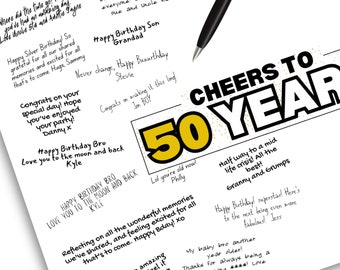 everyone
me and uncle
Love
Happy Birthday Son
Grandad
Happy Silver Birthday! So
grateful for all our shared
memories and excited for all
that's to come. Hugs, Sammy
Never change, Happy Beaurthday
Stevie
Congrats on your
special day! Hope
you've enjoyed
your party!
Danny X
Congrats on making it this long
Jim BOY
Happy Birthday Bru
Love you to the moon and back
Kyle
CHEERS TO
50 YEAR
Lol you're old now!
Philly
Half way to a mid
life crisis! All the
best!
Granny and Grumps
HAPPY BIRTHDAY BRO
LOVE YOU TO THE MOON AND BACK
KYLE
Happy Birthday superstar! Here's
to the next being even more
fabulous! Jess
Reflecting on all the wonderful memories
we've shared, and feeling excited for all
that's to come. Happy Bday! XO
My baby bro another
year older!
Thanks for always being a
amazing